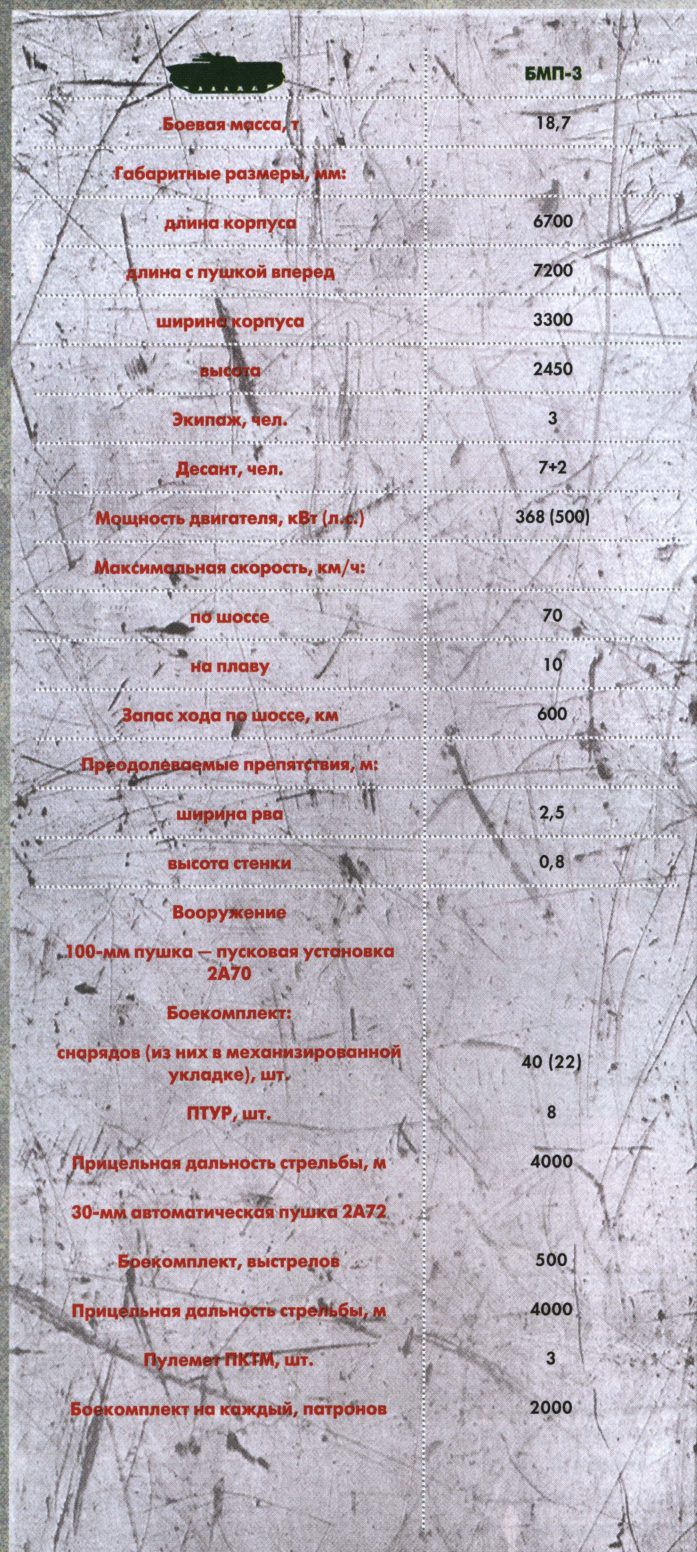 БМП-3
Боевая масса, т 18,7
Габаритные размеры, мм:
длина корпуса 6700
длина с пушкой вперед 7200
ширина корпуса 3300
высота 2450
Экипаж, чел. 3
Десант, чел. 7+2
Мощность двигателя, кВт (л.с.) 368 (500)
Максимальная скорость, км/ч:
по шоссе 70
на плаву 10
Запас хода по шоссе, км 600
Преодолеваемые препятствия, м:
ширина рва 2,5
высота стенки 0,8
Вооружение
100-мм пушка – пусковая установка
2А70
Боекомплект:
снарядов (из них в механизированной
укладке), шт. 40 (22)
ПТУР, шт. 8
Прицельная дальность стрельбы, м 4000
30-мм автоматическая пушка 2А72
Боекомплект, выстрелов 500
Прицельная дальность стрельбы, м 4000
Пулемет ПКТМ, шт. 3
Боекомплект на каждый, патронов 2000